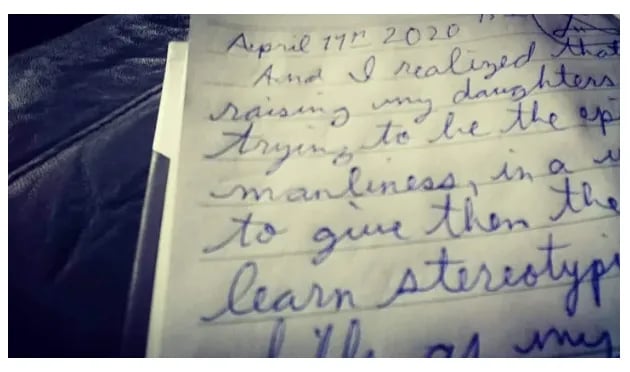 April 17th 2020
And I realized that
raising my daughters
trying to be the ep
manliness, in a
to give them the
learn stereotypi
as my